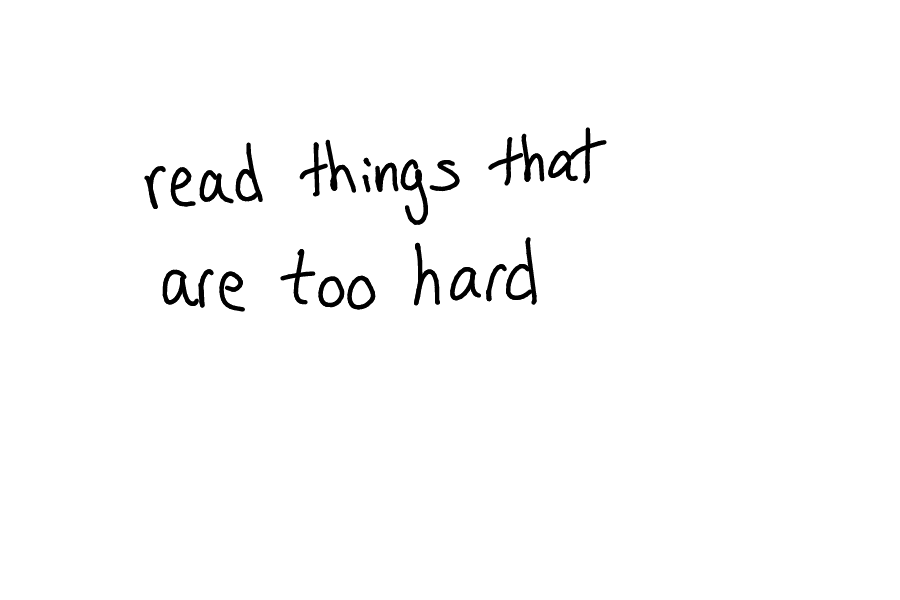 read things that
are too hard